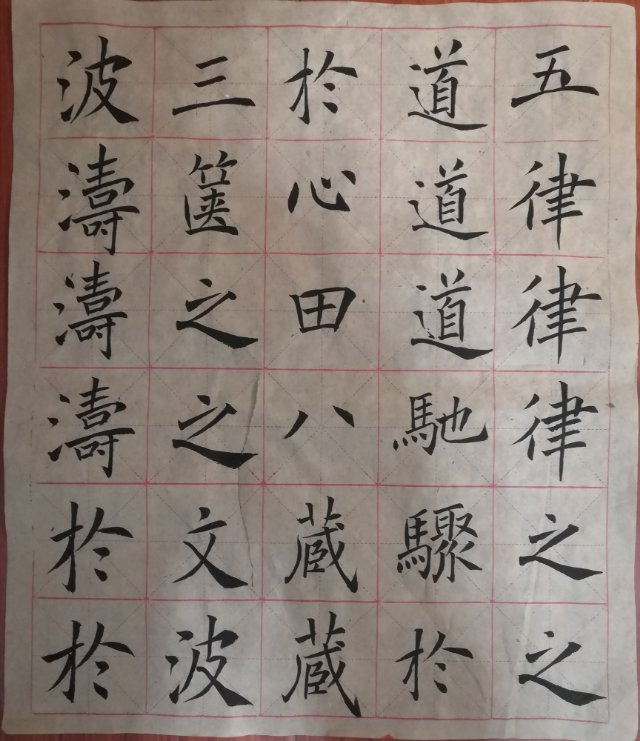 五律律律之之
道道道馳驟於
於心田八蔵蔵
三篋之之文波
波濤濤濤於於